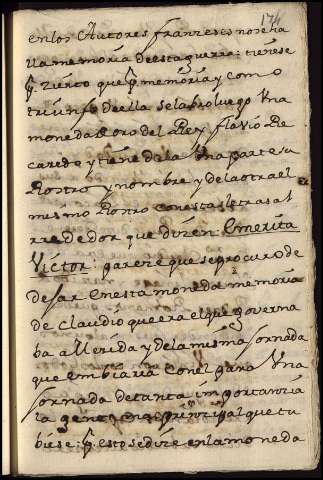 174
en los Autores franzeses no se ha
lla memoria de esta guerra: tienese
p.r zierto que p.r memoria y como
triunfo de ella se labro luego Vna
moneda de oro del Rey flavio Re
caredo y tiene de la Vna parte su
Rostro y nombre y de la otra el
mismo Rostro con estas letras al
rrededor que dizen Emerita
Victor: pareze que se procuro de
desar en esta moneda memoria
de Claudio que era el que governa
ba a Merida y de la misma Jornada
que embiaria con el gana Vna
Jornada de tanta importanzia
la gente mas prinzipal que tu
biese: p.r esto se dize en la moneda